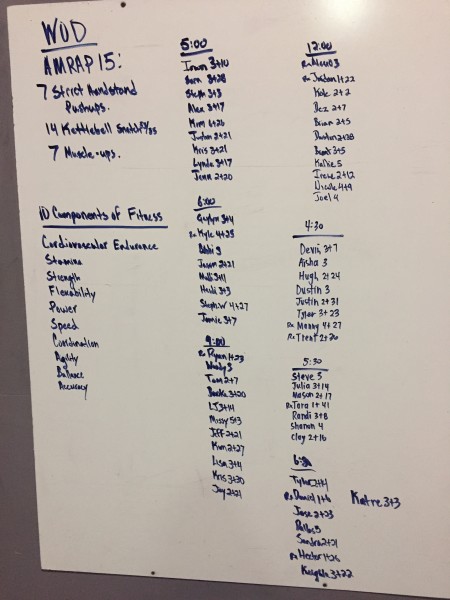 WOD
AMRAP 15:
7 Strict Handstand
Pushups.
14 Kettlebell Snatch
7 Muscle-ups.
10 Components of Fitness
Cardiovascular Endurance
Stamina
Strength
Flexability
Power
Speed
Coordination
Agility
Balance
Accuracy
5:00
3+10
3+28
Steph 3+3
Alex 3+17
Kim 2+26
Justin 2+21
Kris 3+21
Lynda 3+17
Jenn 2+20
6:00
3+4
Rx Kyle 4+23
Bobbi 3
Jason 2+21
3+11
Heidi 3+3
Steph.W 4+27
Jamie 3+7
9:00
Rx Ryan 1+23
Woody 3
Tom 2+7
3+20
LJ 3+14
Missy 5+3
Jeff 2+21
Kim 2+27
Lisa 3+4
Kris 3+30
Jay 2+21
12:00
Rx 3
Rx 1+22
2+2
Dez 2+7
Brian 2+5
Dustin 2+28
3+5
Katie 5
Irene 2+12
Nicole 4+9
Joel 4
4:30
Devin 3+7
Aisha 3
Hugh 2+24
Dustin 3
Justin 2+31
Tyler 3+23
Rx Manny 4+27
Rx Trent 2+20
5:30
Steve 5
Julia 3+14
Mason 2+17
Rx Tara 1+41
Randi 3+8
Sharon 4
Clay 2+16
Tyler
Rx Daniel 1+6
Katre 3+3
Jose 2+23
Dallas 3
Sandra 2+21
Rx Hector 1+25
Kayla 3+22